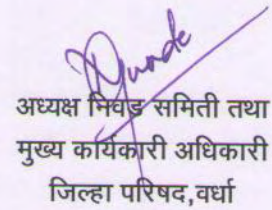 अध्यक्ष निवड समिती तथा
मुख्य कार्यकारी अधिकारी
जिल्हा परिषद,वर्धा